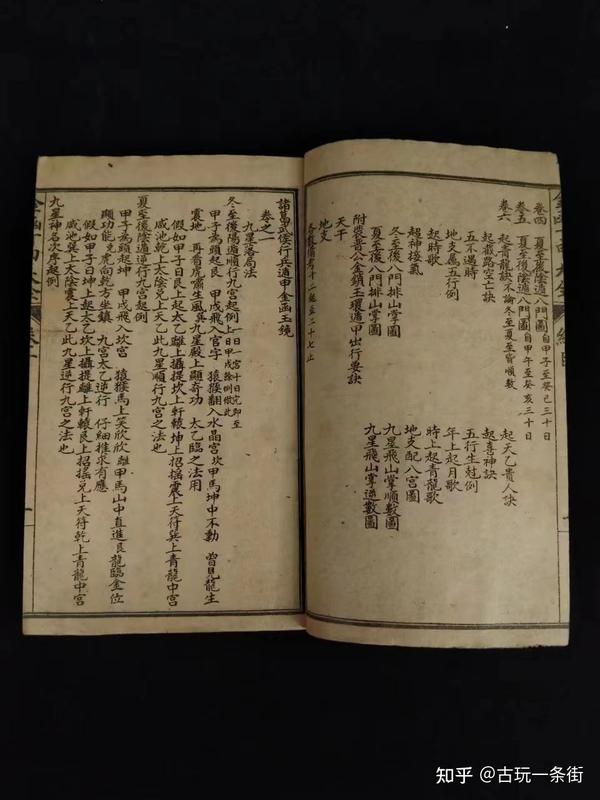 卷四　夏至後陰遁八門圖自甲子至癸巳三十日
卷五　夏至後陰遁八門圖自甲午至癸亥三十日
卷六
起青龍訣不論冬至夏至皆順數
起天乙貴人訣
起道路空亡訣
起喜神訣
五不遇時
五行生尅例
地支屬五行例
年上起月歌
起時歌
時上起青龍歌
超神接氣
地支配八宮圖
冬至後八門排山掌圖
九星飛山掌順數圖
夏至後八門排山掌圖
九星飛山掌逆數圖
附袁晉公金鎖玉環遁甲出行要訣
天干
地支
諸葛武侯行兵遁甲金函玉鏡
卷之一
九星落局法
冬至後陽遁順行九宮起例一日一宮十日完即至一日甲戌餘例倣此
甲子為頭起艮　甲戌飛入離宮字　猿猴翻入水晶宮坎甲馬坤中不動　曾見龍生
震地　再看虎嘯生風巽九星殿上顯奇功　太乙臨之法用
假如甲子日艮上起太乙離上攝提坎上軒轅坤上招搖震上天符巽上青龍中宮
咸池乾上太陰兌上天乙此九星順行九宮之法也
夏至後陰遁逆行九宮起例
甲子為頭起坤　甲戌飛入坎宮　猿猴馬上笑欣欣離甲馬山中直進艮　龍臨金位
頗功能兌虎向乾方坐鎮　九宮太乙逆行　仔細推求有應
假如甲子日坤上起太乙坎上攝提離上軒轅艮上招搖兌上天符乾上青龍中宮
咸池巽上太陰震上天乙此九星逆行九宮之法也
九星神名次序起例
知乎 @古玩一条街